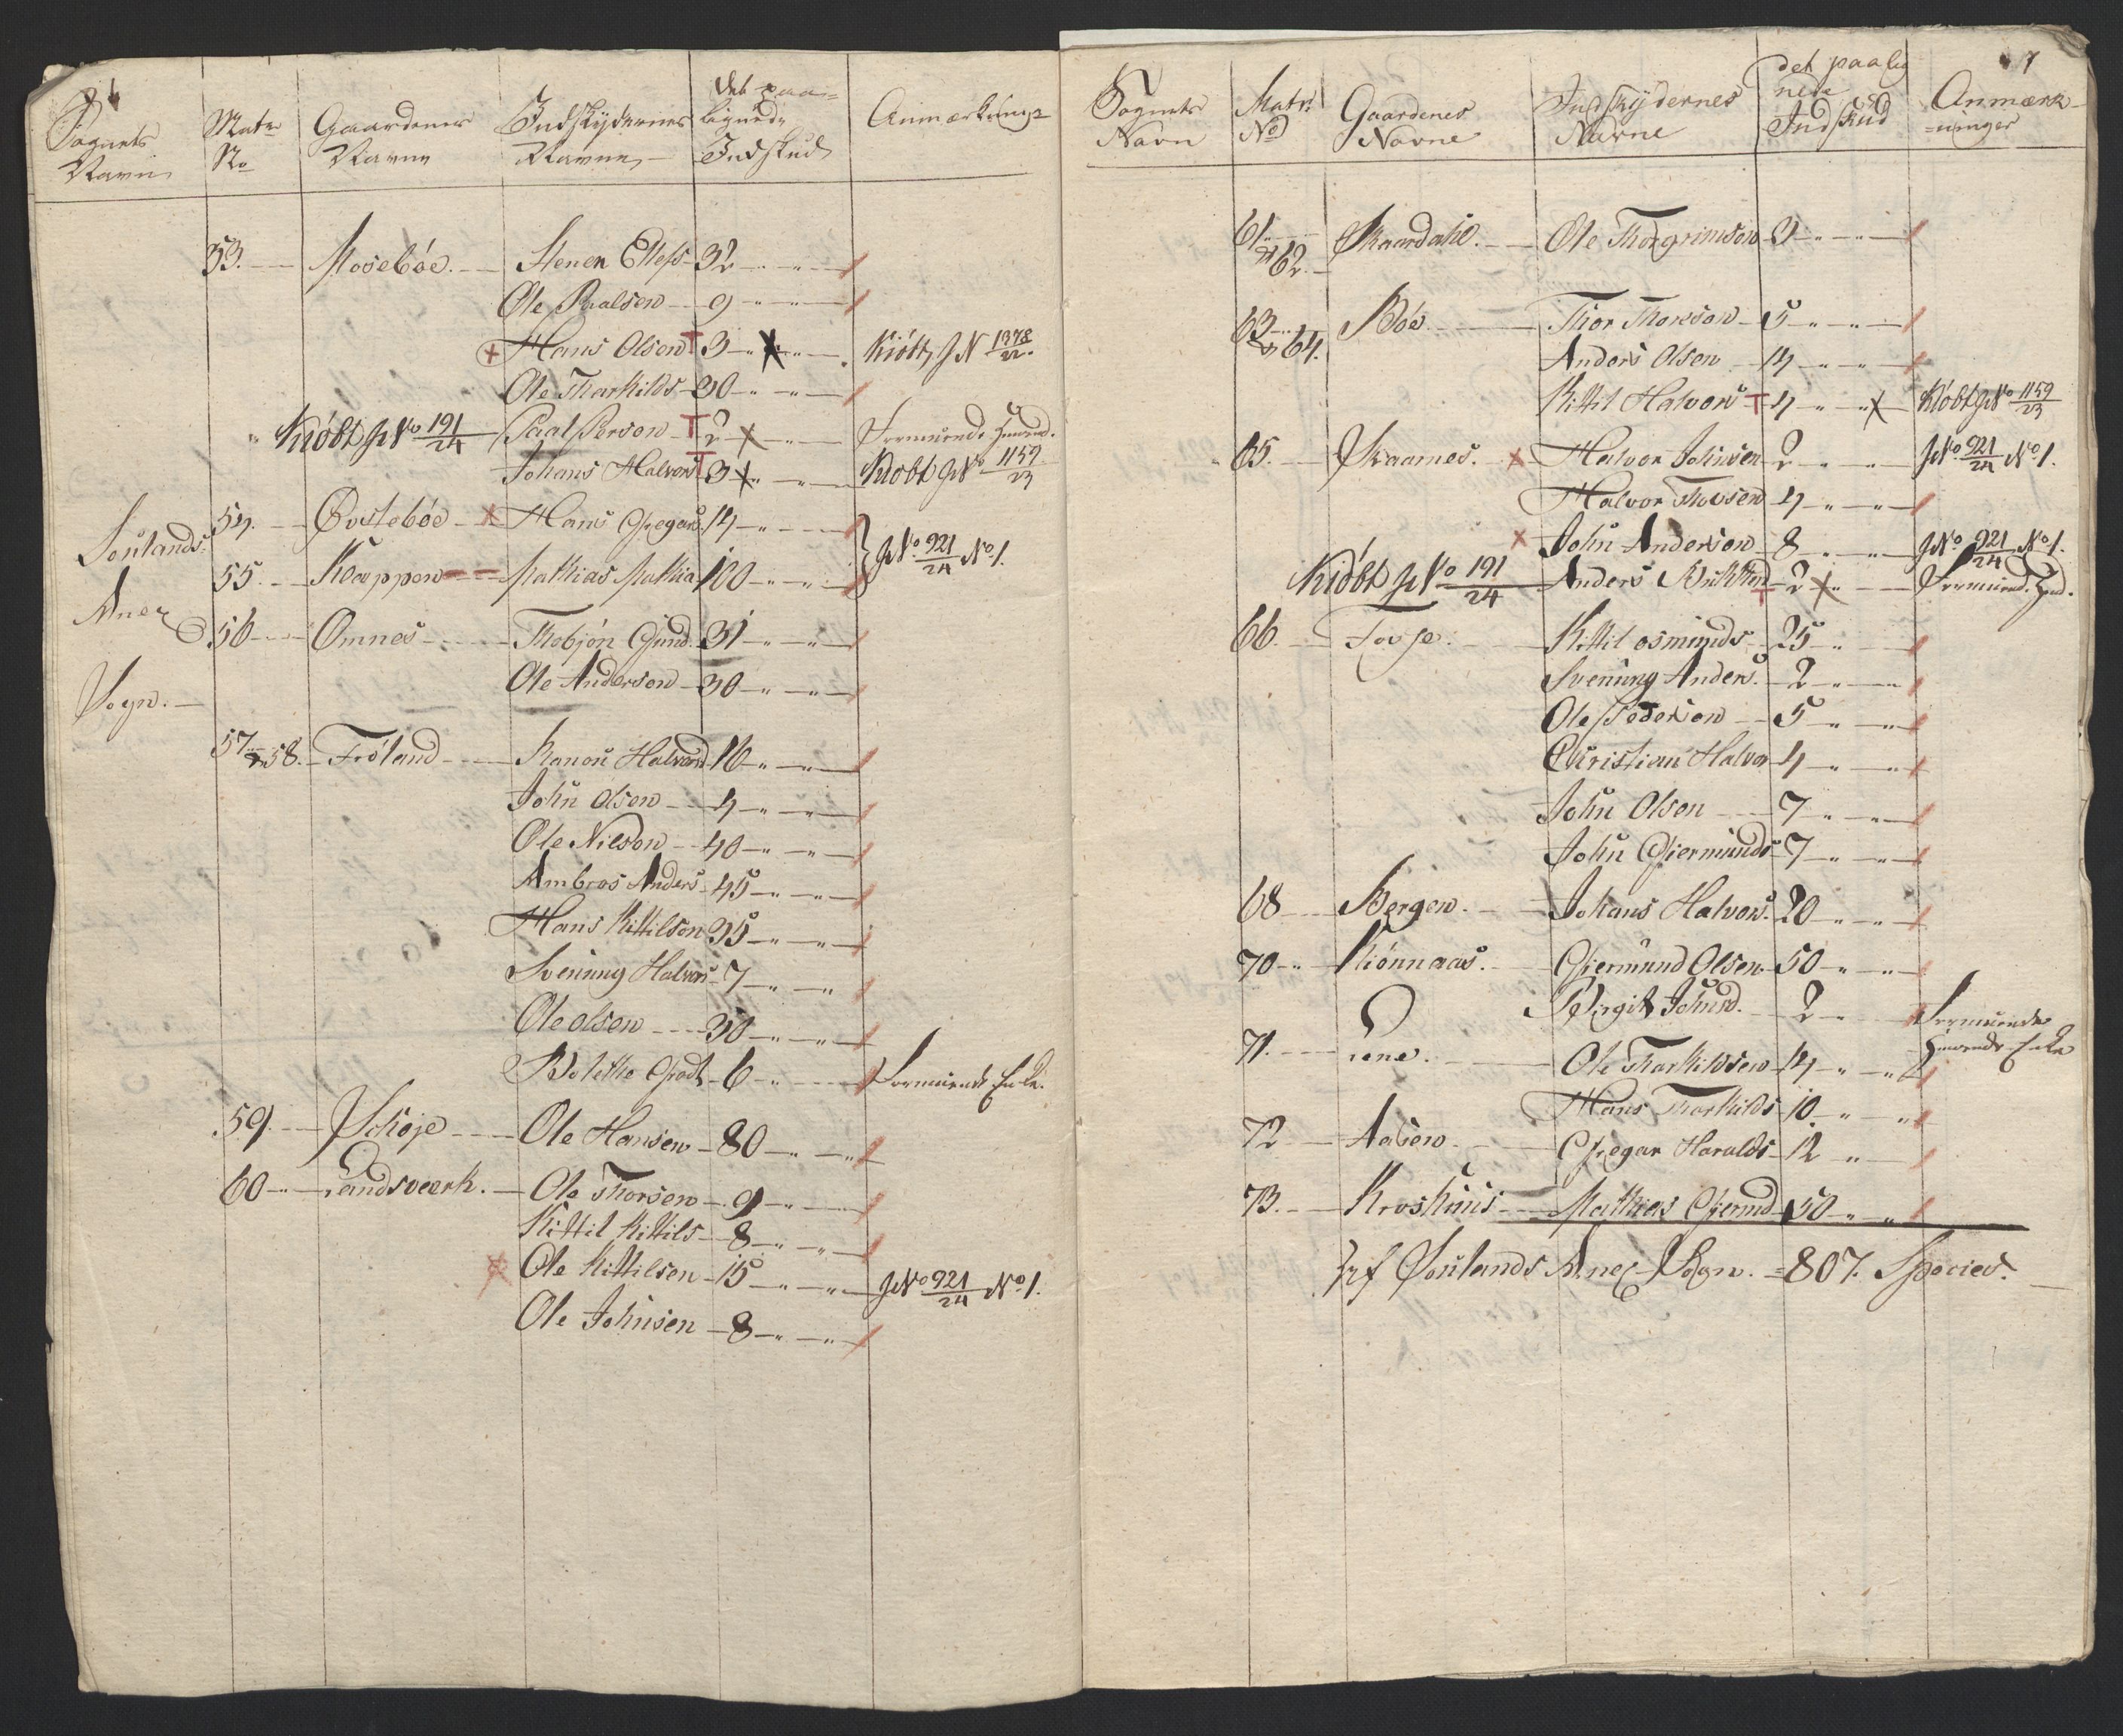 6
Sognets Navn
Matr No
Gaardenes Navne
Indskydernes Navne
det paalignede Indskud
Anmærkninger
53. Mosebóe. Stener Ellefs 32
Ole Paalsen 9
Hans Olsen 3 Kióbt J N 1378/22.
Ole Tharkilds 30
Kióbt J No 191/24 Paal Persen 2
Johans Halvors 3 Kióbt J No 1159/23
54. Óvstebóe Hans Gregars. 14
Soulands 55. Kleppen Mathias Mathia 100 J No. 921/24 No 1.
Anex 56 Omnes Thobjón Gund. 31
Ole Andersen 30
Sogn.
57 & 58. Fróland Kanou Halvors 16
John Olsen 4
Ole Nilson 40
Ambros Anders 45
Hans Kittilson 35
Svenung Halvors 7
Ole Olsen 30
Bolette 6 Formuende Enke.
59. Skóje Ole Hansen 80
60 Landsværk. Ole Thorsen 9
Kittil Kittils 8
Ole Kittilsen 15 J No 921/24 No 1.
Ole Johnsen 8
7
Sognets Navn
Matr No
Gaardenes Navne
Indskydernes Navne
det paalignede Indskud
Anmærkninger
61 & 62. Skaardahl. Ole Thorgrimson 3
63 & 64. Bóe Thor Thorson 5
Anders Olsen 14
Kittil Halvors 4 Kióbt J No 1159/23
65. Skaarnes. Halvor Johnsen 2 J No. 921/24 No 1.
Halvor Thorsen 4
John Anderson 8 J No 921/24 No 1.
Kióbt J No 191/24 Anders 2
66. Tovje. Kittil Osmunds 25
Svenung Anders. 2
Ole Pederson 5
Christian Halvor 4
John Olsen 7
John Gjermunds 7
68 Bergen. Johans Halvors. 20
70 Kiónnaas. Gjermund Olsen 50
Birgit Johnsd. 2 Formuende
71. Liene. Ole Tharkildsen 14 Enke
Hans Tharkilds 10
72 Aasen Gregar Haralds 12
73. Kroshuus Mathias Gjermd 50
Souland's Anex Sogn. = 807. Species.